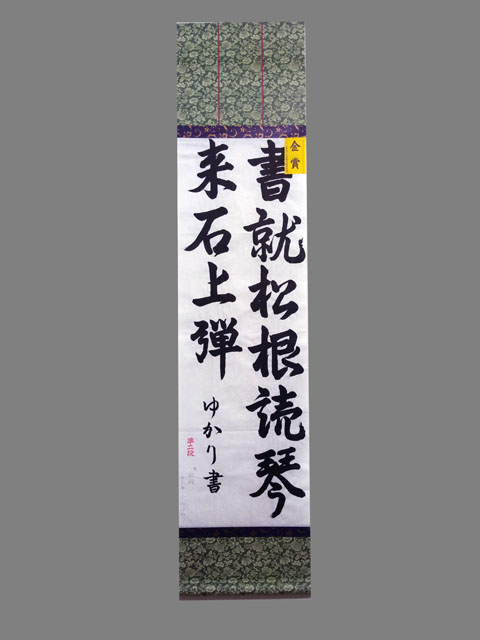 金賞
書就松根読琴
来石上弾
ゆかり書
準二段